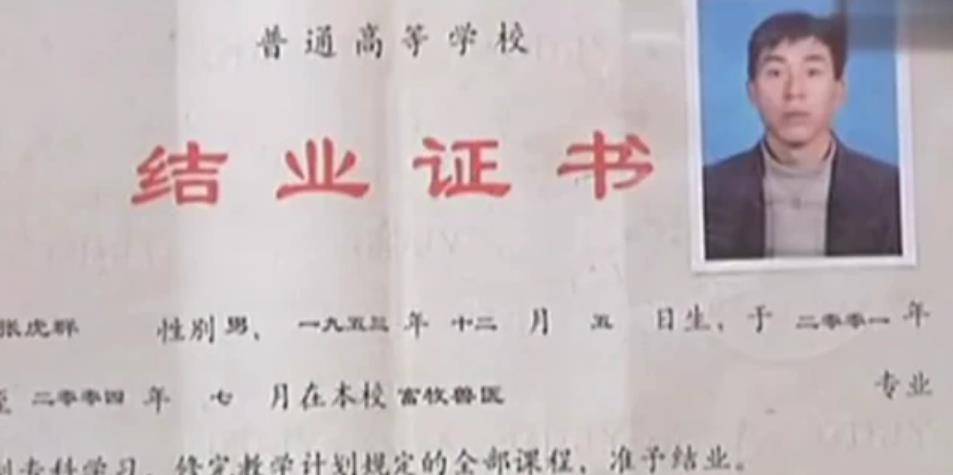 普通高等学校
结业证书
张虎群 性别男、一九五三年十二月五日生、于二零零一年
至二零零四年七月在本校畜牧兽医专业
制专科学习,修完教学计划规定的全部课程,准予结业。